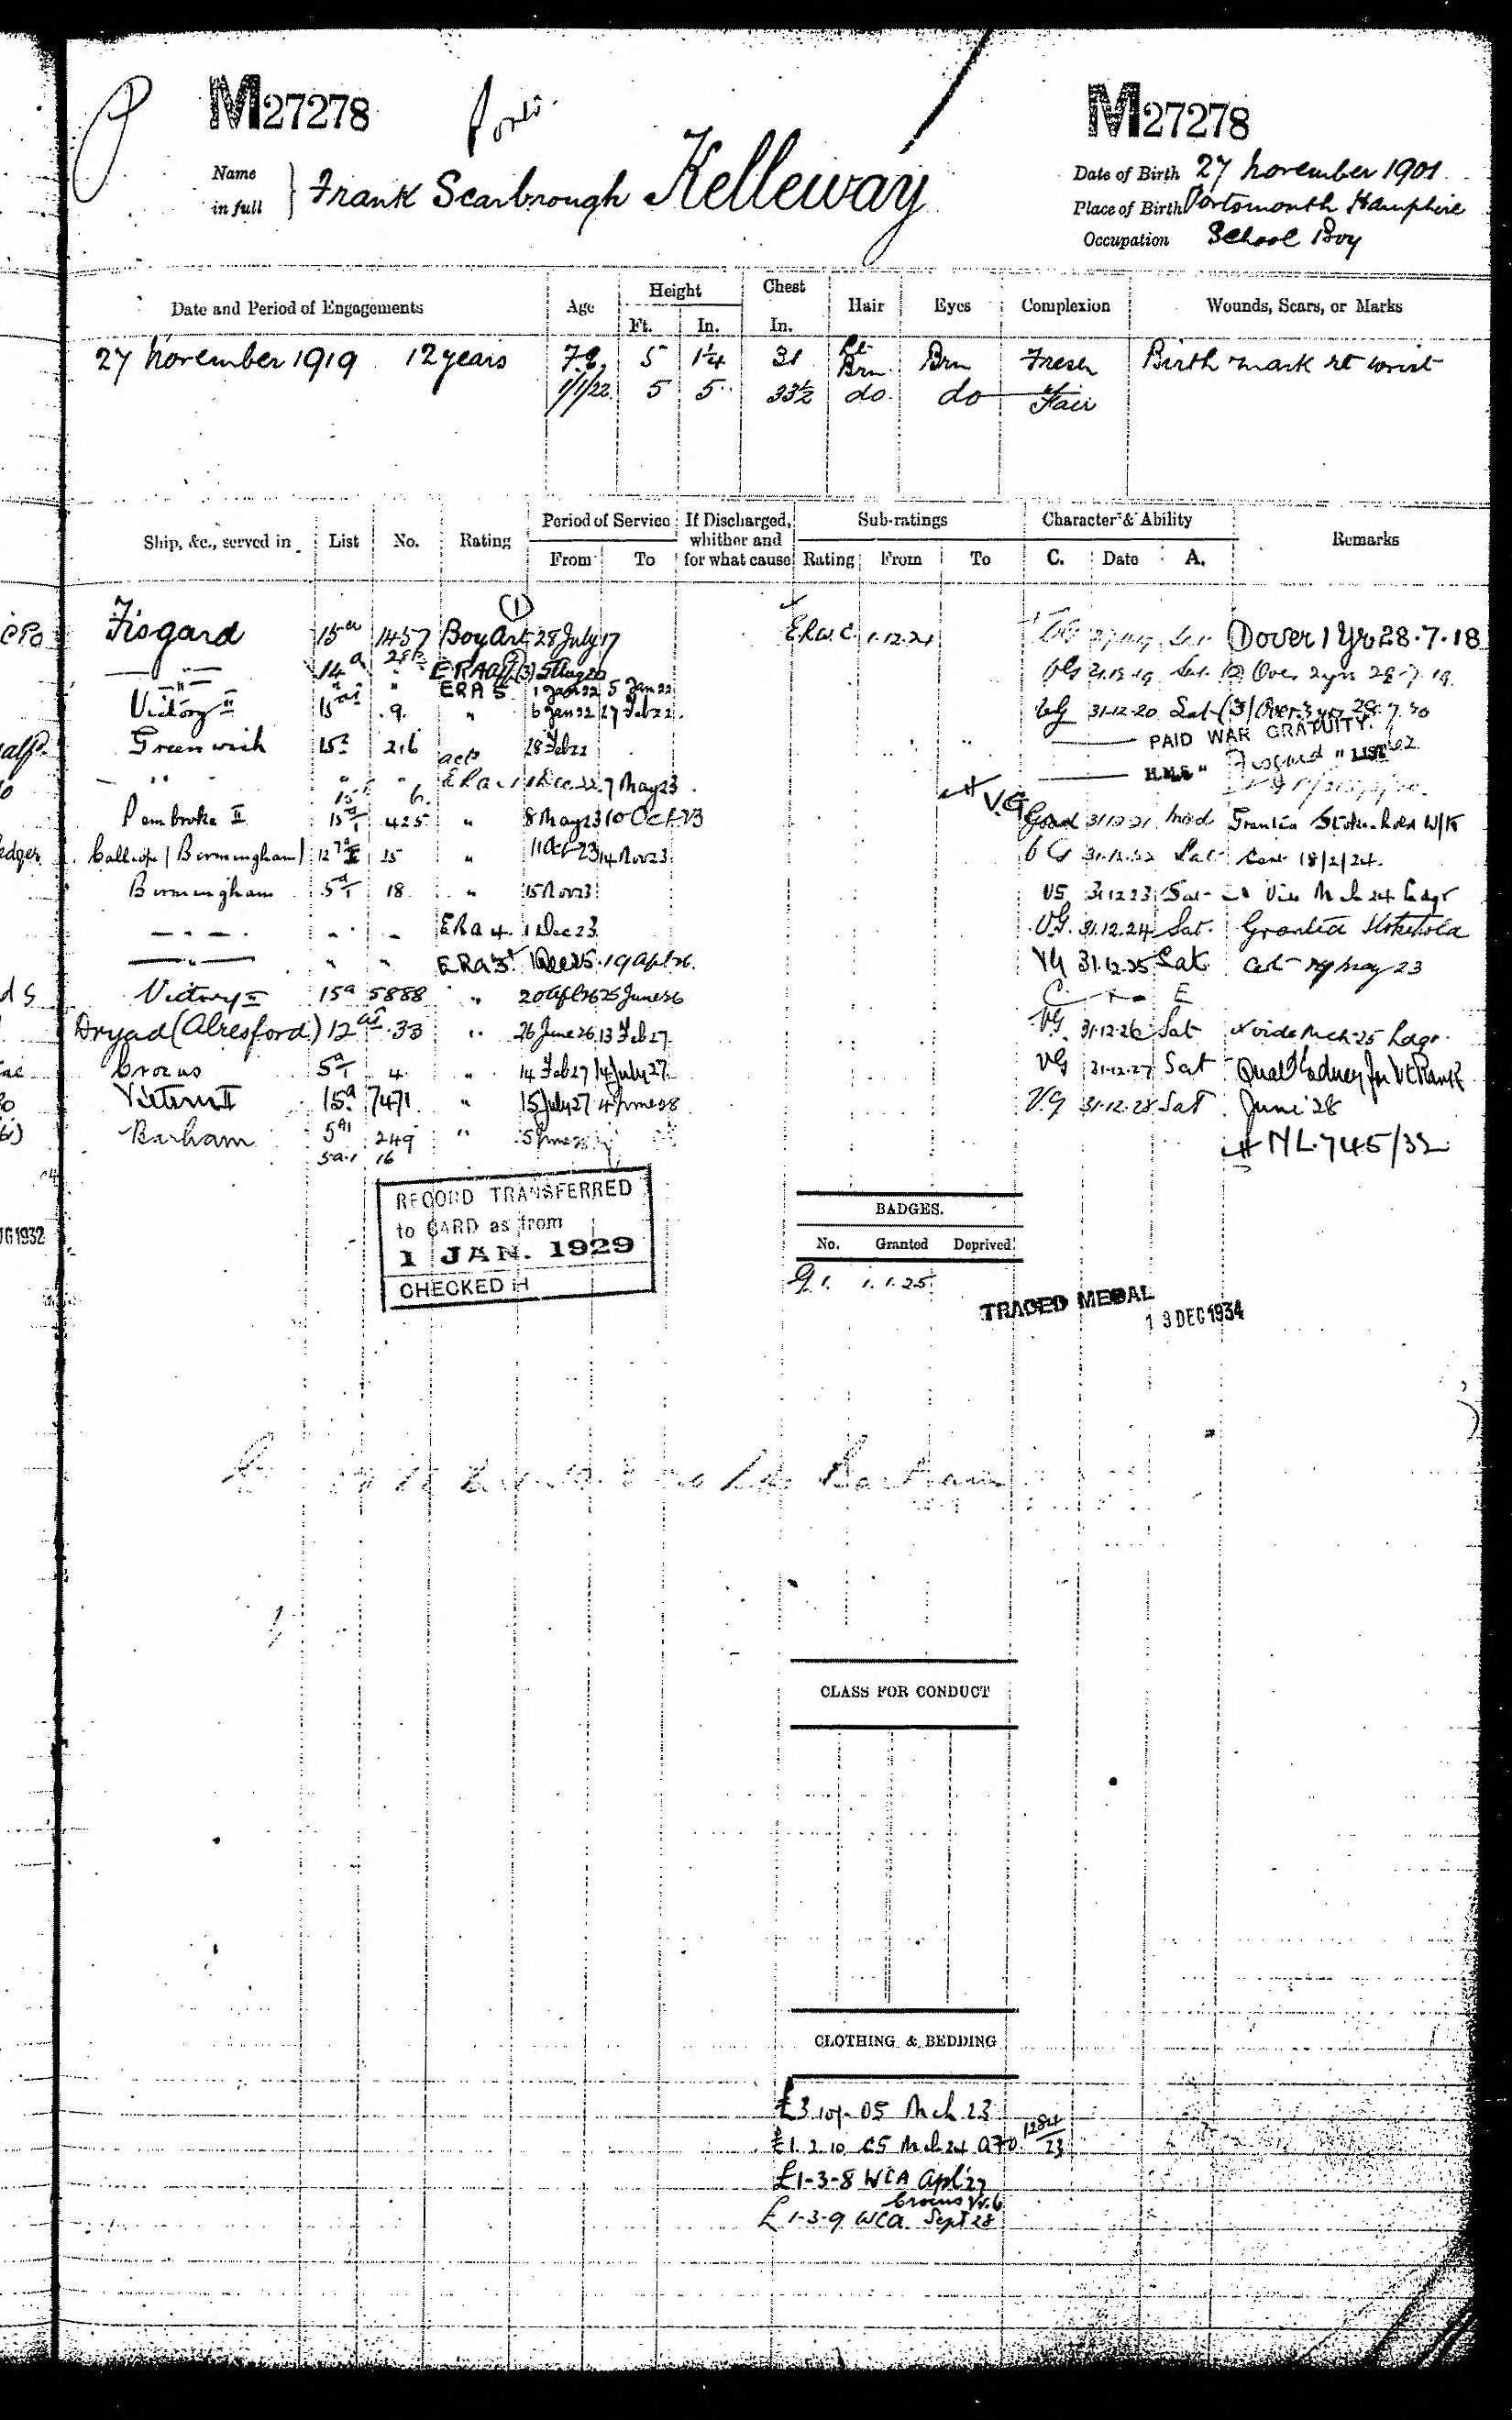 M27278 Ports. M27278
Name in full } Frank Scarbrough Kelleway
Date of Birth 27 November 1901.
Place of Birth Portsmouth Hampshire
Occupation School Boy
Date and Period of Engagements Age Height Ft. In. Chest In. Hair Eyes Complexion Wounds, Scars, or Marks
27 November 1919 12 years 5 1¼ 31 Lt Brn. Brn Fresh Birth mark rt wrist
1/1/22. 5 5 33½ do. do Fair
Ship, &c., served in List No. Rating Period of Service From To If Discharged, whither and for what cause Sub-ratings Rating From To Character & Ability C. Date A. Remarks
Fisgard 15a 1457 Boy Art 28 July 17 1.12.21 ① over 1 Yr 28.7.18
14a ERA 5 Aug 20 VG 31.12.19 Sat. ② Over 2 yrs 28.7.19.
" ERA 5 1 Jan 22 5 Jan 22
Victory II 15 9. " 6 Jan 22 27 Feb 22. VG 31-12-20 Sat (3) Over 3 yrs 28.7.20
Greenwich 15a 216 28 Feb 22 PAID WAR GRATUITY.
" " acts ERA 1 Dec 22 7 May 23. H.M.S " Fisgard " LIST
Pembroke II 15a/1 425 " 8 May 23 10 Oct 23 V.G Good 31.12.21 Mod Granted Stokehold W/K
Calliope (Birmingham) 12 25 " 11 Oct 23 14 Nov 23. VG 31.12.22 Sat Cert 18/2/24.
Birmingham 5a/1 18. " 15 Nov 23 VG 31.12.23 Sat Vide Mch 24 Ledgr
ERA 4. 1 Dec 23. VG. 31.12.24 Sat. Granted Stokehold
ERA 3. 1 Dec 25. 19 Apl 26. VG 31.12.25 Sat Cert May 23
Victory II 15a 5888 " 20 Apl 26 25 June 26
Dryad (Alresford) 12 33 " 26 June 26 13 Feb 27. VG. 31.12.26 Sat vide Mch 25 Ledgr.
Crocus 5a/1 4. " 14 Feb 27 14 July 27. VG 31.12.27 Sat
Victory II 15a. 7471 " 15 July 27 4 June 28 V.G 31.12.28 Sat June 28
Barham 5a1 249 " 5 June 28 NL.745/32
5a.1 16
RECORD TRANSFERRED
to CARD as from
1 JAN. 1929
CHECKED H
JG 1932
BADGES.
No. Granted Deprived.
G 1. 1.1.25.
TRACED MEDAL
13 DEC 1934
Barham
CLASS FOR CONDUCT
CLOTHING & BEDDING
£3 10/- O5 Mch 23
£1.2.10 C5 Mch 24 1284/23
£1-3-8 WCA Apl 27
Crocus
£1-3-9 WCA Sept 28